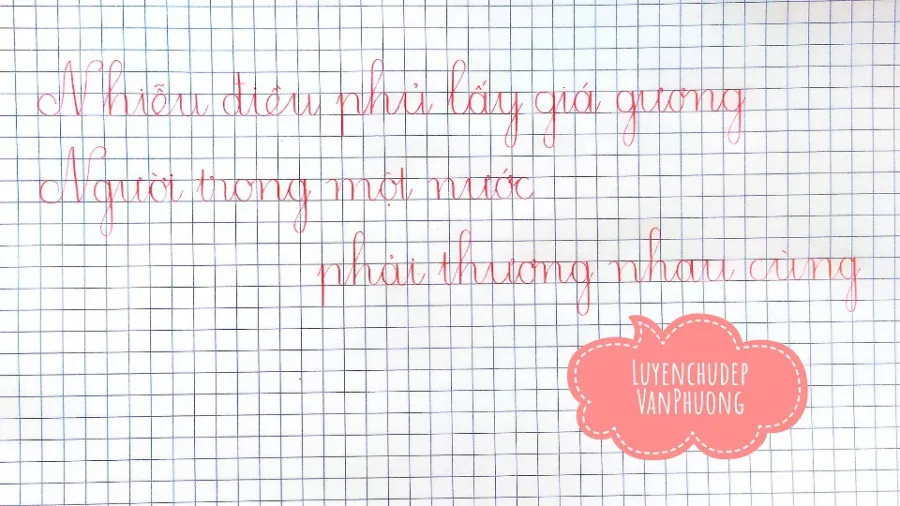 Nhiễu điều phủ lấy giá gương
Người trong một nước
phải thương nhau cùng
LUYENCHUDEP
VANPHUONG